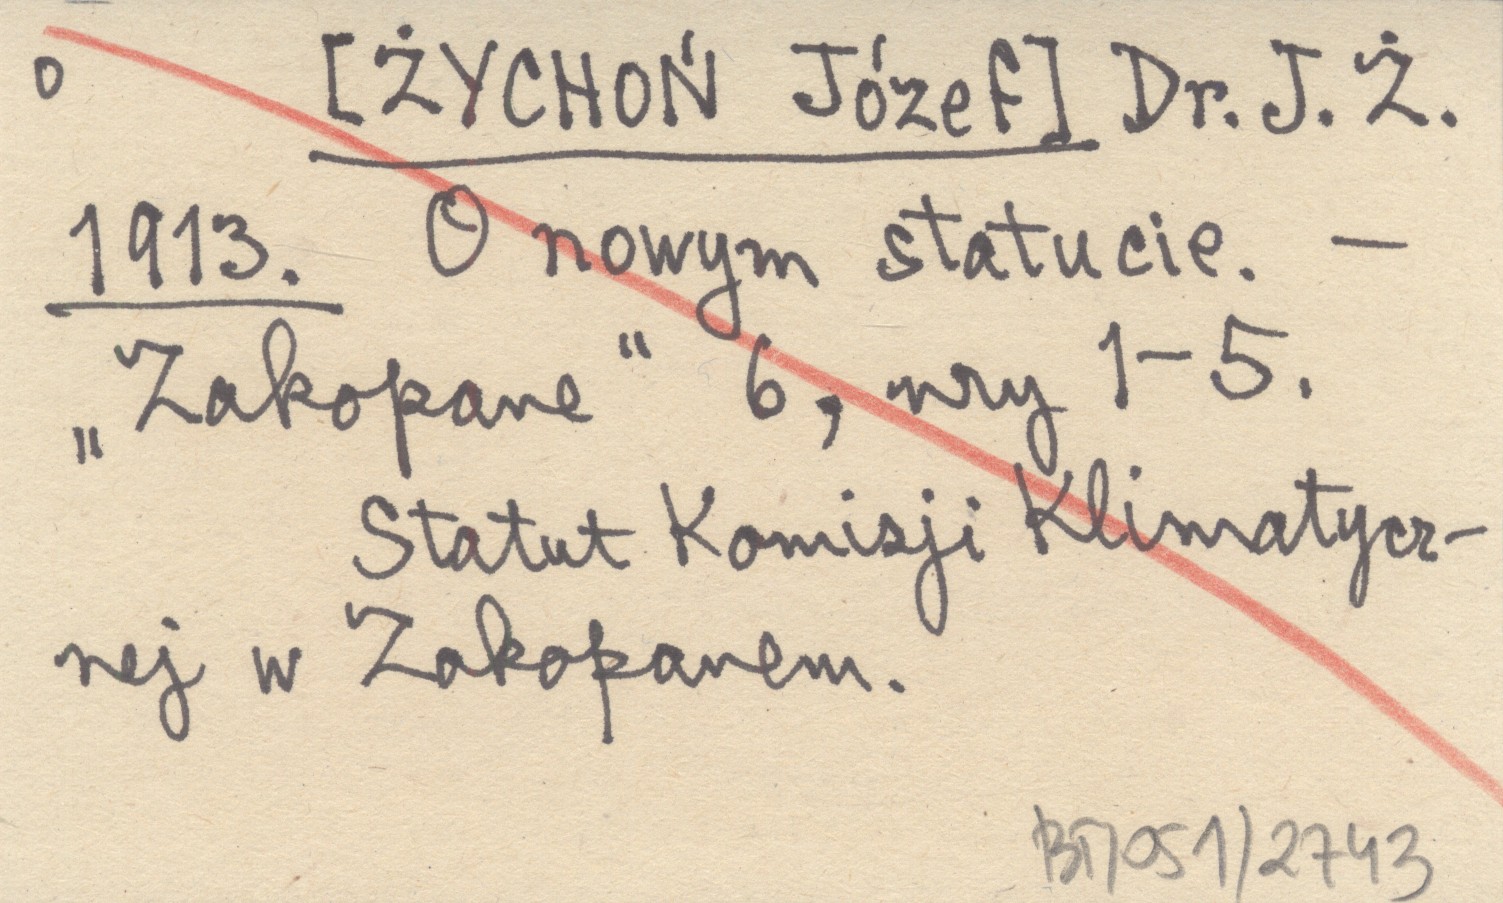 o [ŻYCHOŃ Józef] Dr. J. Ż.
1913. O nowym statucie. —
„Zakopane“ 6, nry 1–5.
Statut Komisji Klimatycz-
nej w Zakopanem.
BT/051/2743